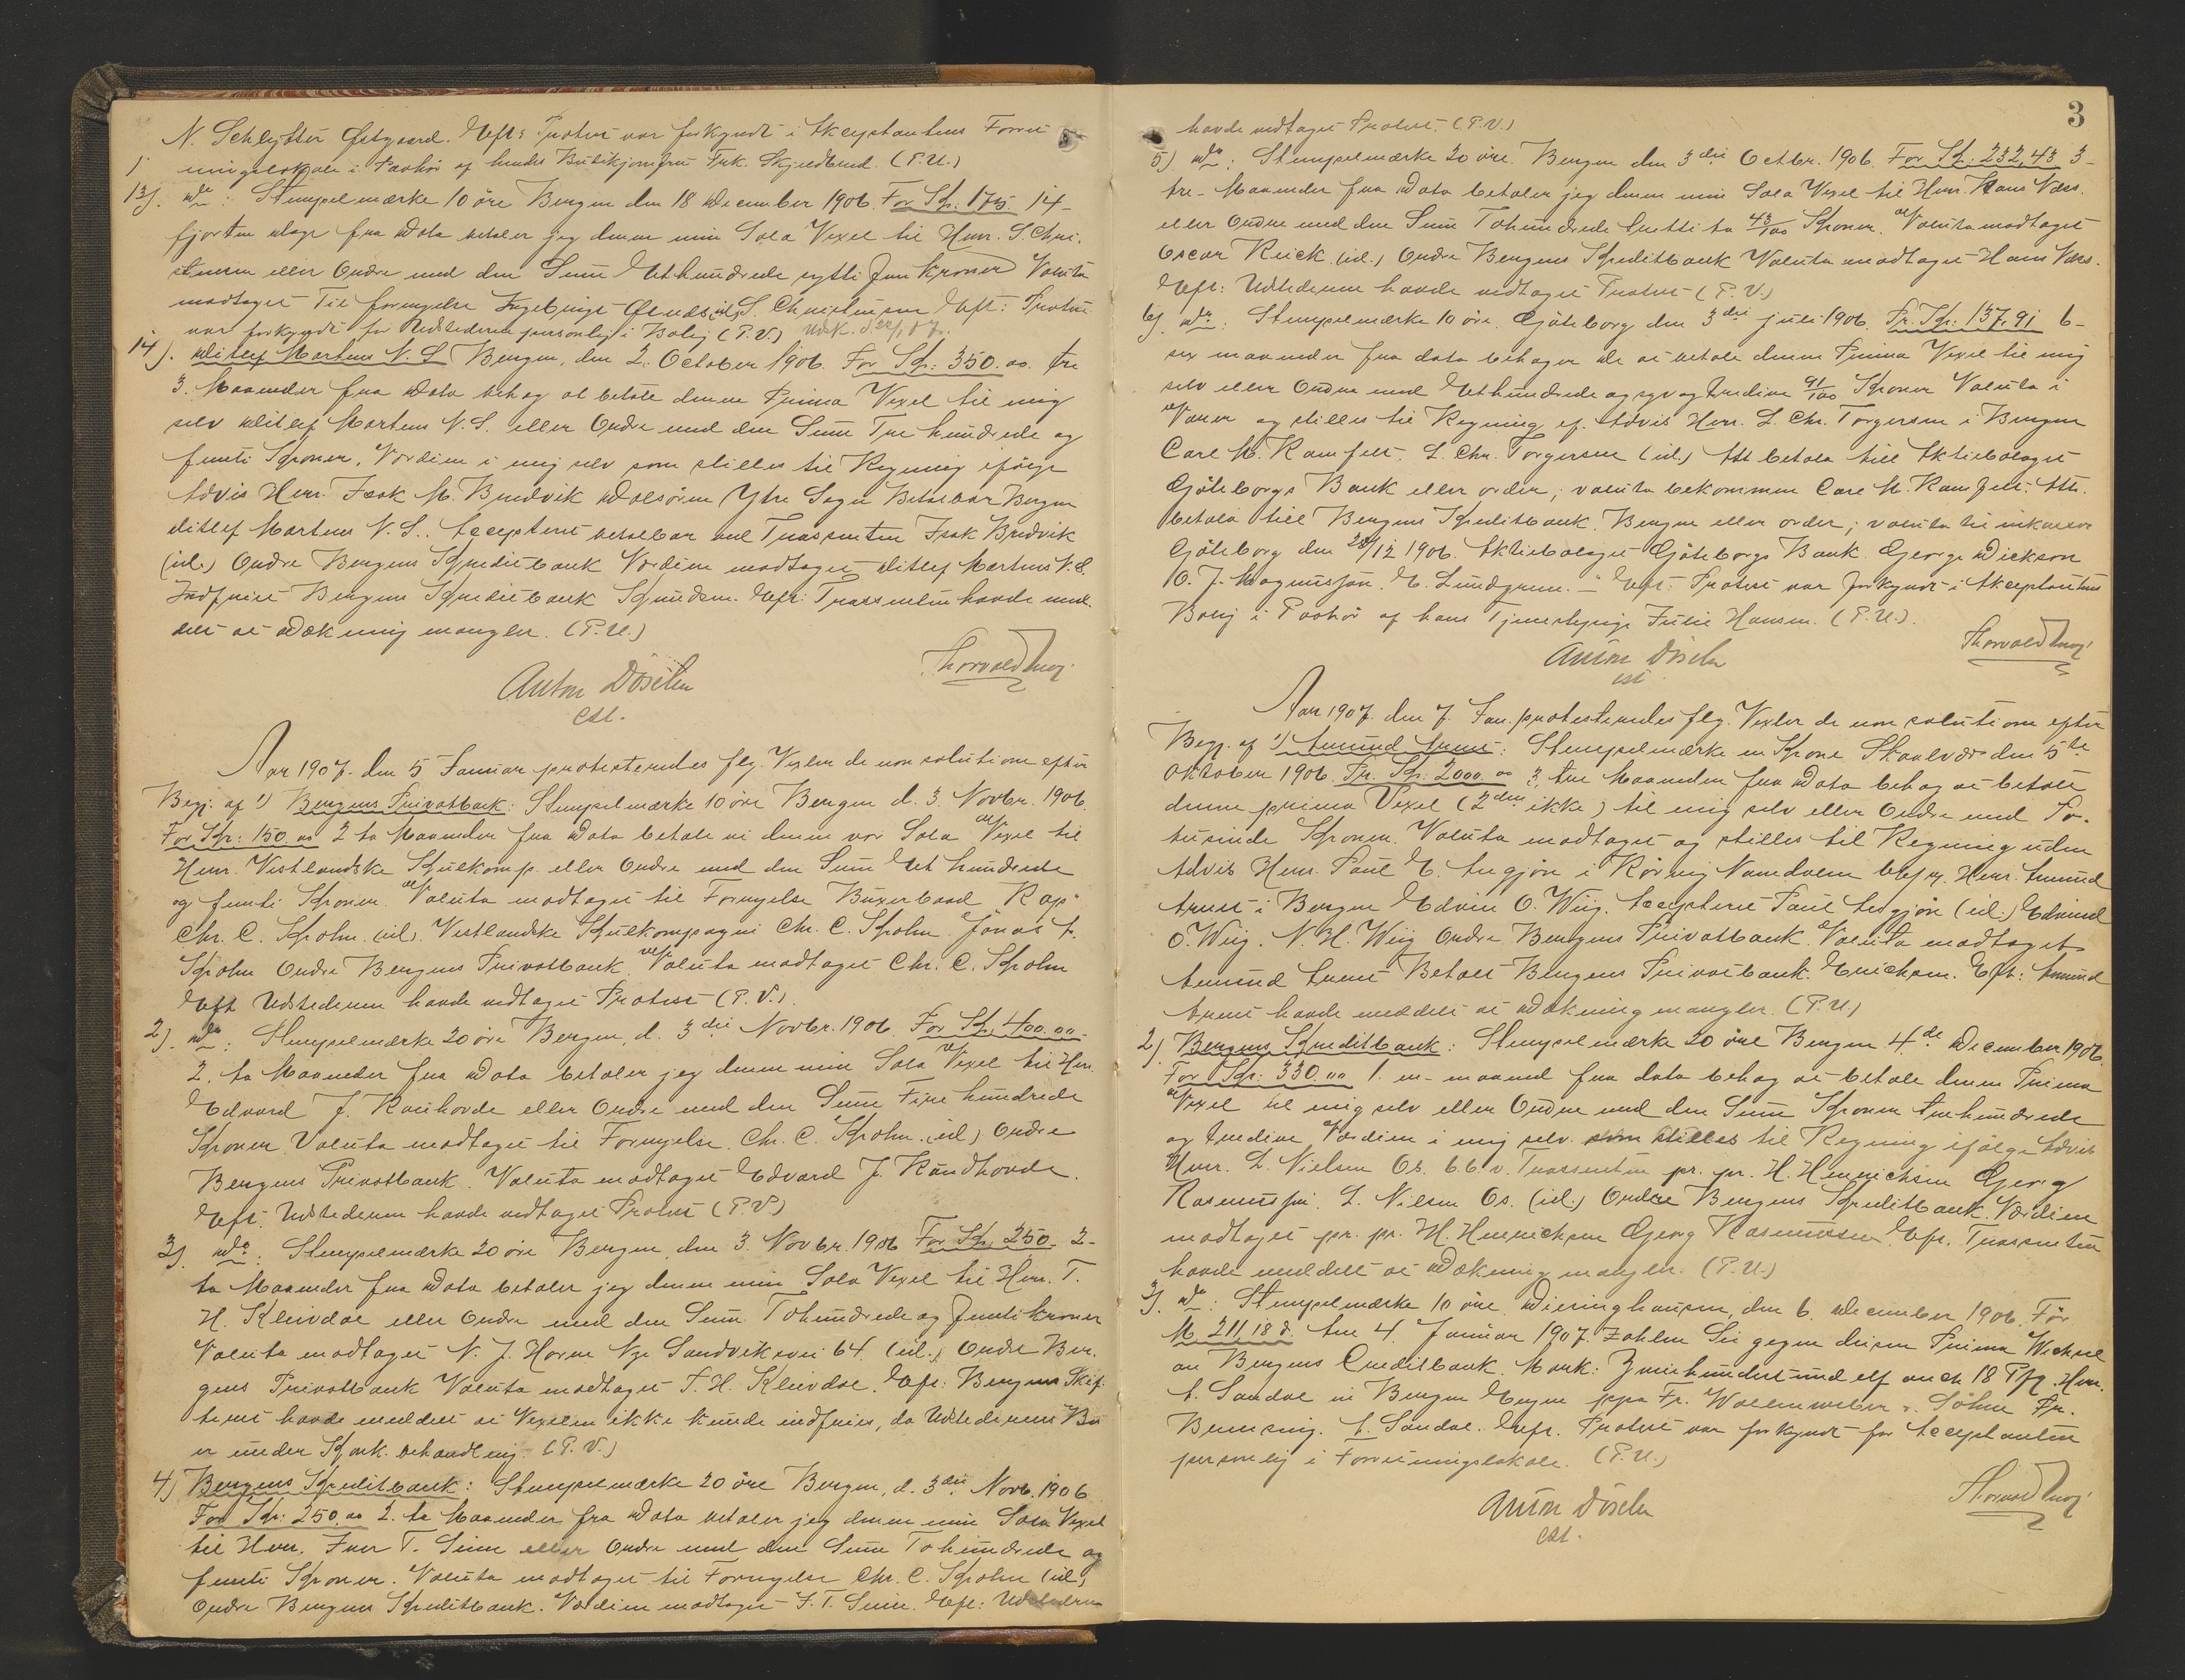 N. Schlytter Østgaard. Eft: Protest var forkyndt i Akceptantens Forret
ningslokale i Paahør af hendes Butikjomfru Frk. Skjeldrud. (P.U.)
13). do: Stempelmærke 10 øre Bergen den 18 December 1906. For Kr. 175 14-
fjorten dage fra Dato betaler jeg denne min Sola Vexel til Herr. S. Chri.
stensen eller Ordre med den Sum Et hundrede sytti fem kroner Valuta
modtaget Til fornyelse Ingebrigt (id) S. Christensen Eft: Protest
var forkyndt for Udstederen personlig i Bolig (P.V.)
14). Ditlef Martens N. S. Bergen, den 2. October 1906. For Kr: 350.00. tre
3. Maaneder fra Dato behag at betale denne Prima Vexel til mig
selv Ditlef Martens N.S. eller Ordre med den Sum Tre hundrede og
femti Kroner. Værdien i mig selv som stilles til Regning ifølge
Advis Herr. Isak M. Bredvik Dalsøren Ytre Sogn Betalbar Bergen
Ditlef Martens N. S.. Accepteret betalbar ved Trassenten Isak Bredvik
(id.) Ordre Bergens Kreditbank Værdien modtaget Ditlef Martens N.S.
Indfriet Bergens Kreditbank Knudsen. Eft: Trassenten havde med.
delt at Dækning mangler. (P.U.)
Anton Döscher
cst.
Aar 1907. den 5 Januar protesteredes flg. Vexler de non solutione efter
Begj. af 1) Bergens Privatbank: Stempelmærke 10 øre Bergen d. 3. Novbr. 1906.
For Kr: 150.00 2 to Maaneder fra Dato betale vi denne vor Sola Vexel til
Herr. Vestlandske Kulkomp. eller Ordre med den Sum Et hundrede
og femti Kroner Valuta modtaget til Fornyelse Buxerbaad "Rap"
Chr. C. Krohn. (id). Vestlandske Kulkompagni Chr. C. Krohn Jonas A.
Krohn Ordre Bergens Privatbank Valuta modtaget Chr. C. Krohn
Eft Udstederen havde vedtaget Protest (P.V.).
2). do: Stempelmærke 20 øre Bergen, d. 3die Novbr. 1906. For Kr. 400.00.
2. to Maaneder fra Dato betaler jeg denne min Sola Vexel til Hrr.
Edvard J. Randhovde eller Ordre med den Sum Fire hundrede
Kroner Valuta modtaget til Fornyelse. Chr. C. Krohn. (id) Ordre
Bergens Privatbank. Valuta modtaget Edvard J. Randhovde.
Eft. Udstederen havde vedtaget Protest (P.V.)
3). do: Stempelmærke 20 øre Bergen, den 3. Novbr. 1906 For Kr. 250 2-
to Maaneder fra Dato betaler jeg denne min Sola Vexel til Herr. T.
H. Kleivdal eller Ordre med den Sum Tohundrede og femti kroner
Valuta modtaget N. J. Horne Nye Sandviksvei 64. (id.) Ordre Ber.
gens Privatbank Valuta modtaget T. H. Kleivdal. Eft: Bergens Skif.
teret havde meddelt at Vexelen ikke kunde indfries, da Udstederens Bo
er under Konk. behandling. (P.V.)
4) Bergens Kreditbank: Stempelmærke 20 øre Bergen, d. 3die Novb. 1906
For Kr: 250.00 2. to Maaneder fra Dato betaler jeg denne min Sola Vexel
til Herr. Iver T. Sunn eller Ordre med den Sum Tohundrede og
femti Kroner. Valuta modtaget til Fornyelse Chr. C. Krohn (id)
Ordre Bergens Kreditbank. Værdien modtaget I. T. Sunn. Eft: Udstederen
3
havde vedtaget Protest. (P.V.)
5) do: Stempelmærke 20 øre. Bergen den 3die Octbr. 1906. For Kr: 232,43 3-
tre- Maaneder fra Dato betaler jeg denne min Sola Vexel til Herr. Hans Næss.
eller Ordre med den Sum Tohundrede tretti to 43/100 Kroner. Valuta modtaget
Oscar Rieck (id.) Ordre Bergens Kreditbank Valuta modtaget Hans Næss.
Eft: Udstederen havde vedtaget Protest (P.V.)
6) do: Stempelmærke 10 øre. Göteborg den 3die juli 1906. Fr. Kr: 137,91 6-
sex maaneder fra dato behager De at betale denne Prima Vexel til mig
selv eller Ordre med Ethundrede og syv og tredive 91/100 Kroner Valuta i
Varer og stilles til Regning ef. Advis Herr. L. Chr. Torgersen i Bergen
Carl M. Kamfelt. L. Chr. Torgersen (id.) Att betala till Aktiebolaget
Göteborgs Bank eller order; valuta bekommen Carl M. Kamfelt. Att.
betala till Bergens Kreditbank. Bergen eller order; valuta til inkasso
Göteborg den 28/12 1906. Aktiebolaget Göteborgs Bank. George Dickson
O. J. Magnusson. E. Lundgren. - Eft: Protest var forkyndt i Akceptantens
Bolig i Paahør af hans Tjenestepige Julie Hansen. (P.U.).
Anton Döscher
cst
Aar 1907. den 7. Jan. protesteredes flg. Vexler de non solutione efter
Begj. af 1) Amund Aunet: Stempelmærke en Krone Skaalvær den 5te
Oktober 1906. Fr. Kr. 2000.00 3, tre Maaneder fra Dato behag at betale
denne prima Vexel (2den ikke) til mig selv eller Ordre med To-
tusinde Kroner. Valuta modtaget og stilles til Regning uden
Advis Herr. Paul E. Angjøn i Rørvig Namdalen Herr. Amund
Aunet i Bergen Edvin O. Wiig. Accepteret Paul Angjøn (id.) Edvind
O. Wiig. N. H. Wiig Ordre Bergens Privatbank. Valuta modtaget
Amund Aunet Betalt Bergens Privatbank. Erichsen. Eft: Amund
Aunet havde meddelt at Dækning mangler. (P.U.)
2). Bergens Kreditbank: Stempelmærke 20 øre Bergen 4de December 1906
For Kr: 330.00 1. en- maaned fra dato behag at betale denne Prima
Vexel til mig selv eller Ordre med den Sum Kroner trehundrede
og tredive Værdien i mig selv som stilles til Regning ifølge Advis
Herr. L. Nielsen Os. b.b.v. Trassenten pr. pr. H. Henrichsen Georg
Rasmussen. L. Nilsen Os. (id.) Ordre Bergens Kreditbank. Værdien
modtaget pr. pr. H. Henrichsen Georg Rasmussen Eft. Trassenten
havde meddelt at Dækning mangler. (P.U.)
3). do: Stempelmærke 10 øre. Dieringhausen, den 6. December 1906. Für
M 211,18 d. Am 4. Januar 1907. Zahlen Sie gegen diesen Prima Wechsel
an Bergens Creditbank. Mark: Zweihundertundelf auch 18 Pfg. Herr.
A. Sandal in Bergen ppa Fr. Söhne Fr.
A. Sandal. Eft. Protest var forkyndt for Acceptanten
personlig i Forretningslokale. (P.U.)
Anton Döscher
cst.